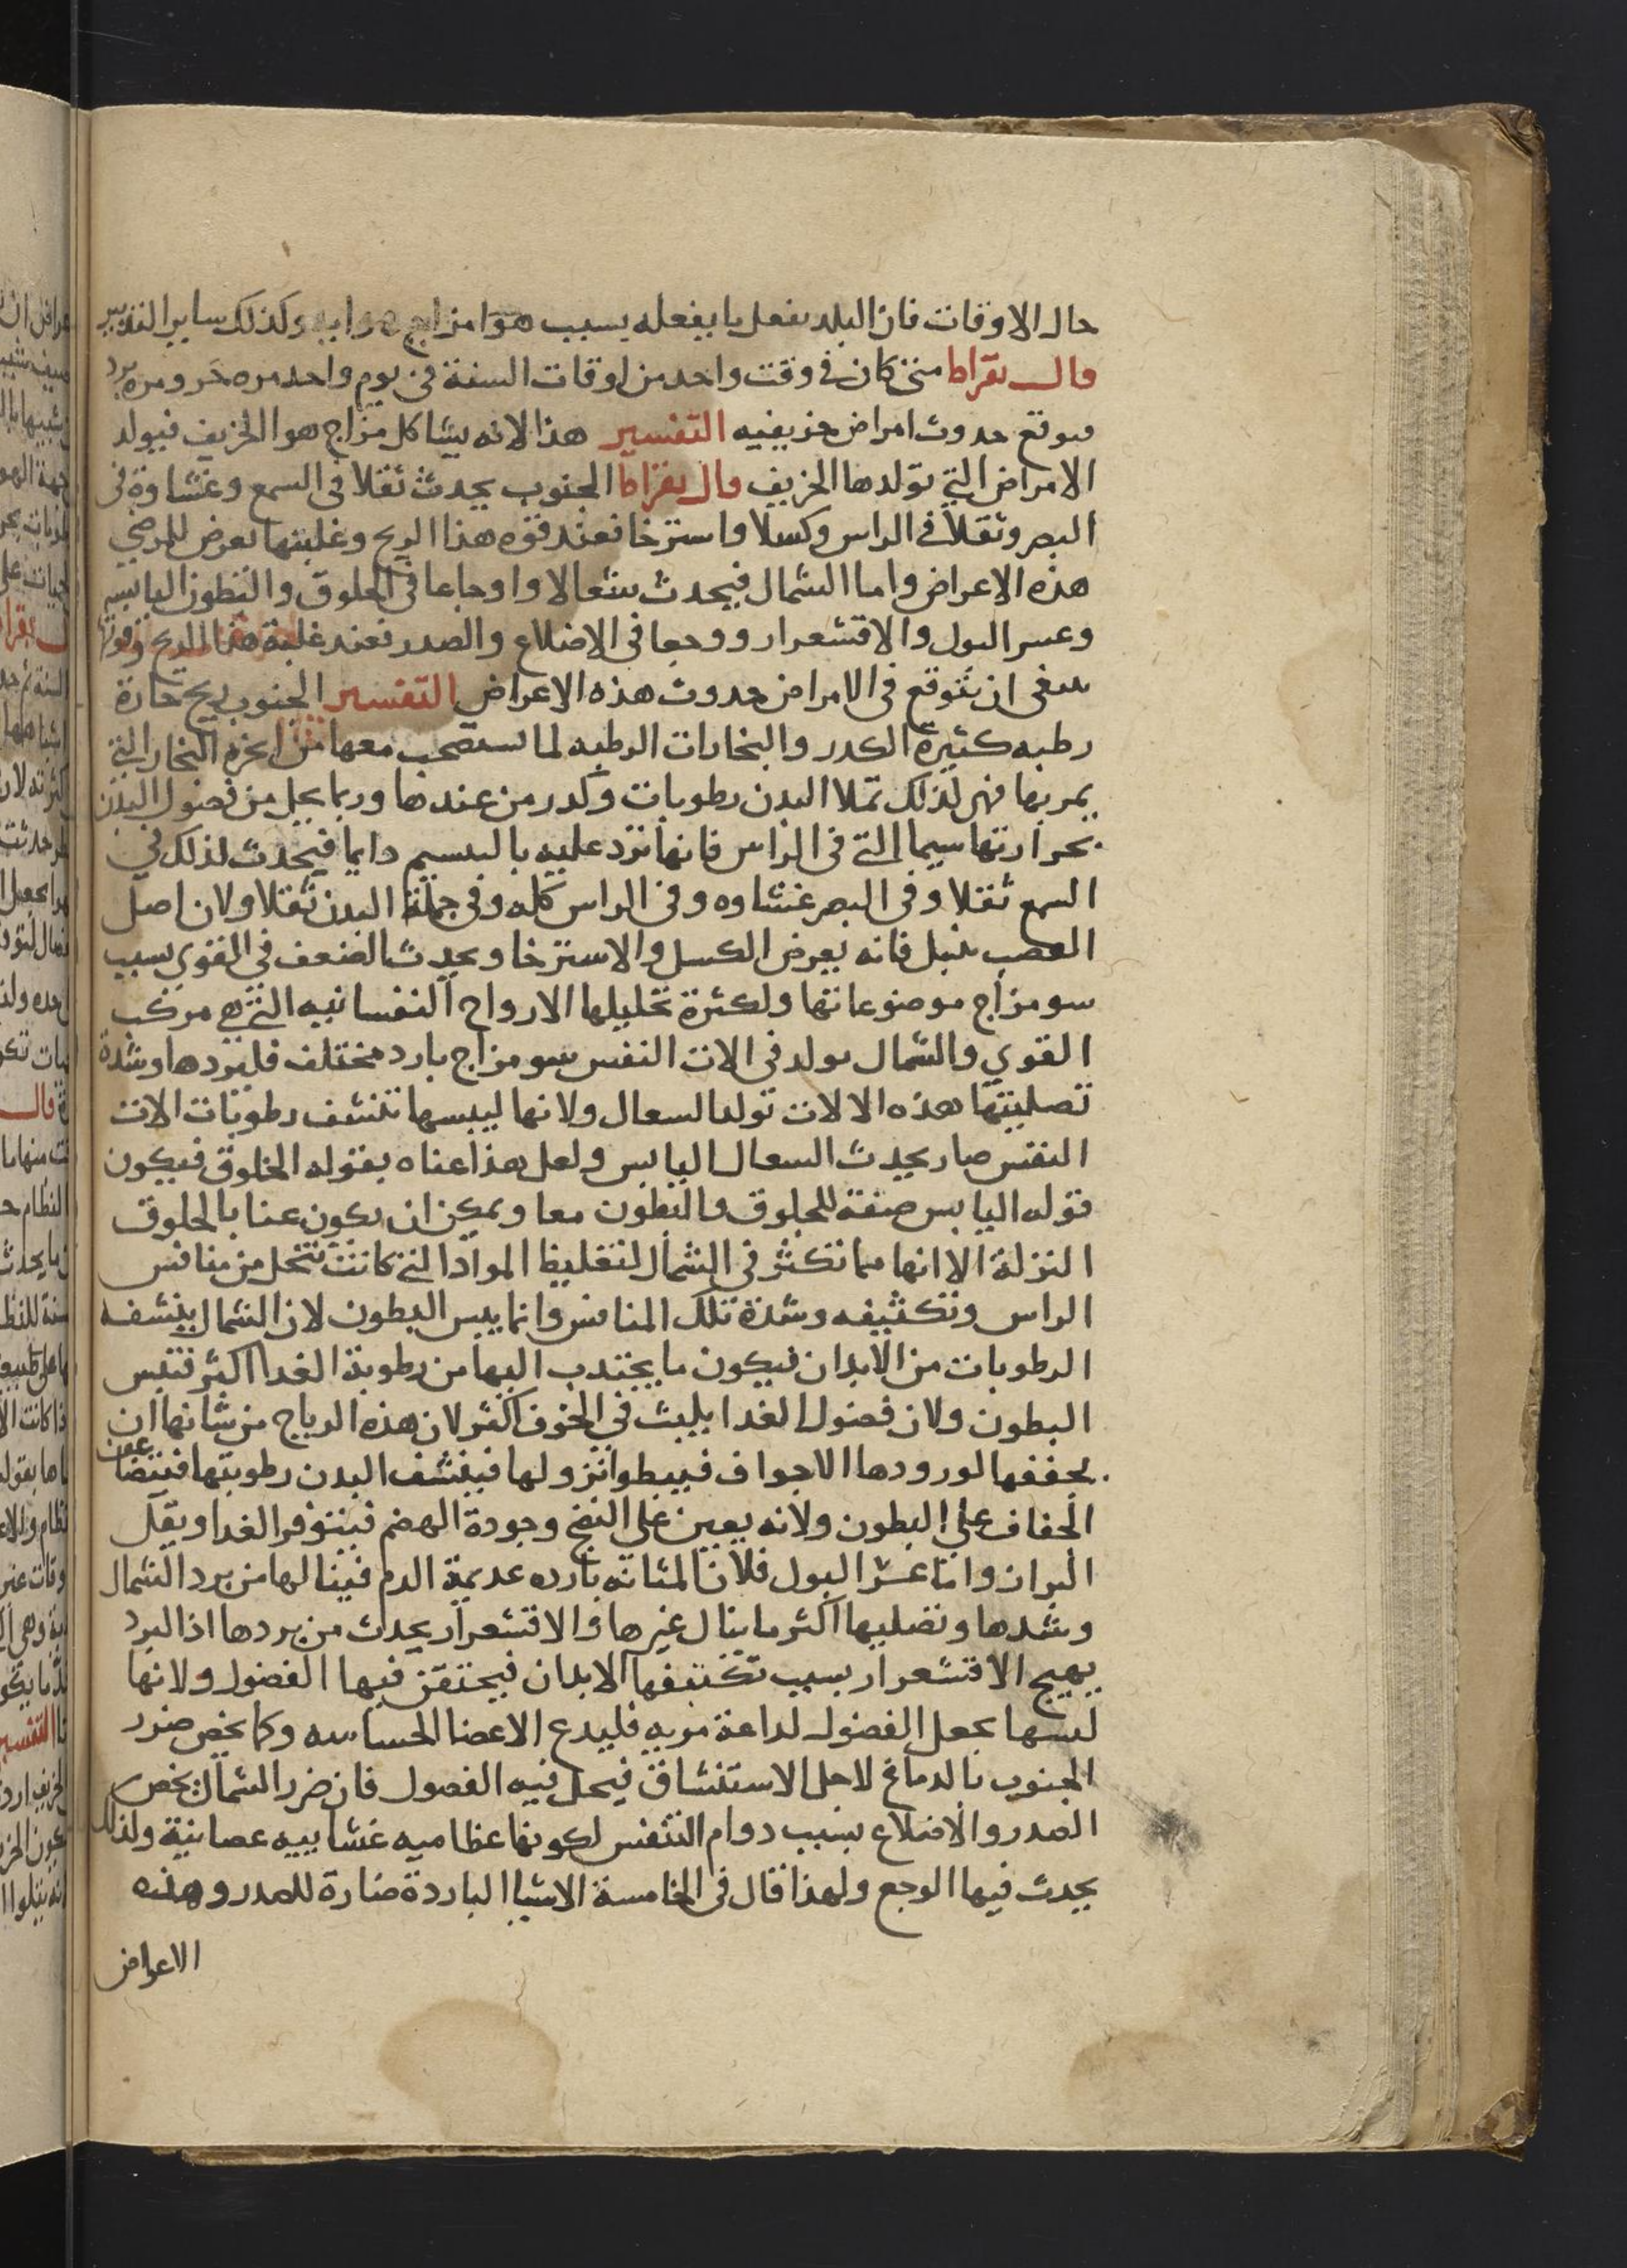 حال الاوقات فان البلد يفعل ما يفعله بسبب هوا مزاج هوايه وكذلك ساير التدبير
قال بقراط متى كان في وقت واحد من اوقات السنة في يوم واحد مره حر ومره برد
فتوقع حدوث امراض خريفيه التفسير هذا لانه يشاكل مزاج هوا الخريف فيولد
الامراض التي تولدها الخريف قال بقراط الجنوب يحدث ثقلا في السمع وغشاوة في
البصر وثقلا في الراس وكسلا واسترخا فعند قوه هذا الريح وغلبتها تعرض للمرضي
هذه الاعراض واما الشمال فيحدث سعالا واوجاعا في الحلوق والبطون اليابسه
وعسر البول والاقشعرار ووجعا في الاضلاع والصدر فعند غلبة هذا الريح وقوتها
ينبغي ان يتوقع في الامراض حدوث هذه الاعراض التفسير الجنوب ريح حارة
رطبه كثيرة الكدر والبخارات الرطبه لما تستصحب معها من ابخرة البخار التي
يمر بها فهي لذلك تملا البدن رطوبات وكدر من عندها وربما يحل من فضول البدن
بحرارتها سيما التي في الراس فانها ترد عليه بالنسيم دايما فيحدث لذلك في
السمع ثقلا وفي البصر غشاوه وفي الراس كله وفي جملة البدن ثقلا ولان اصل
العصب يبتل فانه يعرض الكسل والاسترخا ويحدث الضعف في القوي بسبب
سو مزاج موضوعاتها ولكثرة تحليلها الارواح النفسانيه التي هي مركب
القوي والشمال يولد في الات النفس سو مزاج بارد مختلف فلبردها وشدة
تصليبتها هذه الالات تولد السعال ولانها ليبسها تنشف رطوبات الات
النفس صار يحدث السعال اليابس ولعل هذا عناه بقوله الحلوق فيكون
قوله اليابس صفة للحلوق والبطون معا ويمكن ان يكون عنا بالحلوق
النزلة الا انها مما تكثر في الشمال لتغليظ المواد التي كانت تتحل من منافس
الراس وتكثيفه وشدة تلك المنافس وانما يبس البطون لان الشمال ينشف
الرطوبات من الابدان فيكون ما يجتذب اليها من رطوبة الغدا اكثر فتيبس
البطون ولان فضول الغدا يلبث في الجوف اكثر لان هذه الرياح من شانها ان
يجففها لورودها الاجواف فيبطوا نزولها فينشف البدن رطوبتها فيتضاعف
الجفاف علي البطون ولانه يعين علي النضج وجودة الهضم فيتوفر الغدا ويقل
البراز واما عسر البول فلان المثانه بارده عديمة الدم فينالها من برد الشمال
وشدها وتصليبها اكثر ما ينال غيرها والاقشعرار يحدث من بردها اذ البرد
يهيج الاقشعرار بسبب تكثيفها الابدان فيحتقن فيها الفضول ولانها
ليبسها يجعل الفضول لداعة مويه فليدع الاعضا الحساسه وكما يخص ضرر
الجنوب بالدماغ لاجل الاستنشاق فيحل فيه الفصول فان ضرر الشمال يخص
الصدر والاضلاع بسبب دوام التنفس لكونها عظاميه غشاييه عصابية ولذلك
يحدث فيها الوجع ولهذا قال في الخامسة الاشيا الباردة ضارة للصدر وهذه
الاعراض